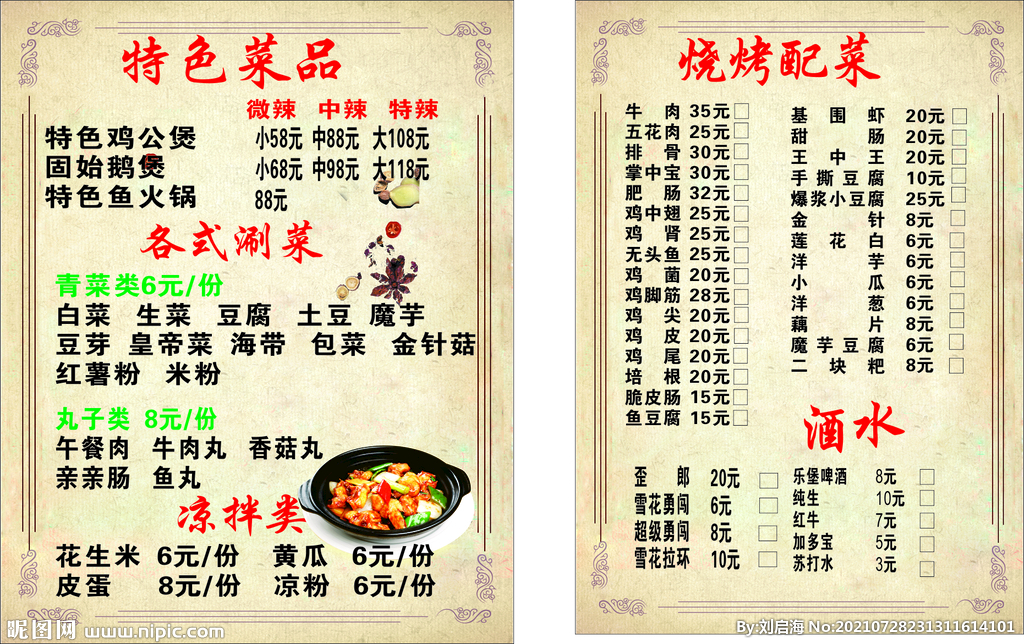 特色菜品
微辣 中辣 特辣
特色鸡公煲 小58元 中88元 大108元
固始鹅煲 小68元 中98元 大118元
特色鱼火锅 88元
各式涮菜
青菜类6元/份
白菜 生菜 豆腐 土豆 魔芋
豆芽 皇帝菜 海带 包菜 金针菇
红薯粉 米粉
丸子类 8元/份
午餐肉 牛肉丸 香菇丸
亲亲肠 鱼丸
凉拌类
花生米 6元/份 黄瓜 6元/份
皮蛋 8元/份 凉粉 6元/份
昵图网 www.nipic.com
烧烤配菜
牛肉 35元
五花肉 25元
排骨 30元
掌中宝 30元
肥肠 32元
鸡中翅 25元
鸡肾 25元
无头鱼 25元
鸡菌 20元
鸡脚筋 28元
鸡尖 20元
鸡皮 20元
鸡尾 20元
培根 20元
脆皮肠 15元
鱼豆腐 15元
基围虾 20元
甜肠 20元
王中王 20元
手撕豆腐 10元
爆浆小豆腐 25元
金针 8元
莲花白 6元
洋芋 6元
小瓜 6元
洋葱 6元
藕片 8元
魔芋豆腐 6元
二块粑 8元
酒水
歪郎 20元
雪花勇闯 6元
超级勇闯 8元
雪花拉环 10元
乐堡啤酒 8元
纯生 10元
红牛 7元
加多宝 5元
苏打水 3元
By:刘启海 No:20210728231311614101